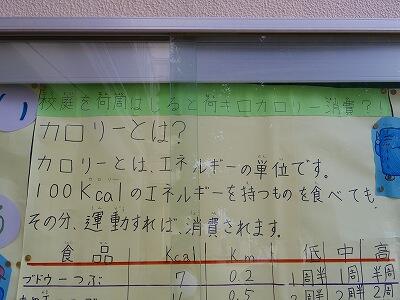 校庭を何周はしると何キロカロリー消費?!
カロリーとは?
カロリーとは、エネルギーの単位です。
100Kcalのエネルギーを持つものを食べても、
その分、運動すれば、消費されます。
食品 Kcal Km 低 中 高
ブドウ一つぶ 7 0.2 1周半 1周 半周
0.5 2周半 2周